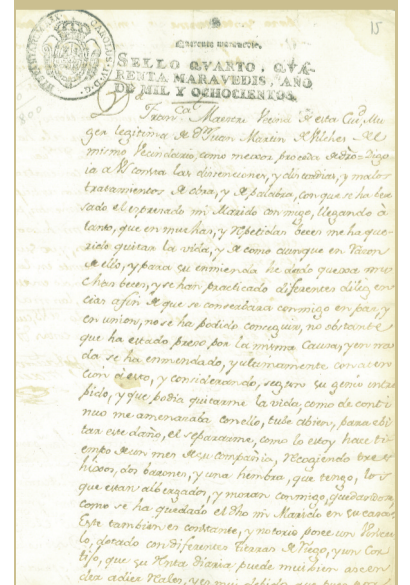 15
Quarenta maravedis.
SELLO QVARTO, QVA-
RENTA MARAVEDIS, AÑO
DE MIL Y OCHOCIENTOS.
Dª Franca Maestre Vecina de esta Ciud, Mu
ger legitima de Dn Juan Martin de Vilches del
mismo Vecindario, como mejor proceda
a V consta las disenciones, y discordias, y malos
tratamientos de obra, y de palabra, con que se ha
el expresado mi Marido conmigo, llegando á
tanto, que en muchas, y repetidas veces me ha que
rido quitar la vida, y de como aunque en razon
de ello, y para su enmienda he dado quexa mu
chas veces, y se han practicado diferentes diligen
cias afin de que se conservara conmigo en paz, y
en union, no se ha podido conseguir, no obstante
que ha estado preso por la misma Causa, y en na
da se ha enmendado, y ultimamente con aten
cion á esto, y considerando, segun su genio intre
pido, y que podia quitarme la vida, como de conti
nuo me amenazaba con ello, tube abien, para ebi
tar este daño, el separarme, como lo estoy hace ti
empo de un mes de su compañia, recogiendo tres
hijos, dos barones, y una hembra, que tengo, los
que estan albergados, y moran conmigo, quedandose
como se ha quedado el dho mi Marido en su casa
Este tambien es constante, y notorio posee un Vincu
lo, dotado con diferentes tierras de riego, y un Cor
tijo, que su renta diaria puede mui bien ascen
der a diez Reales, y es mui debido que